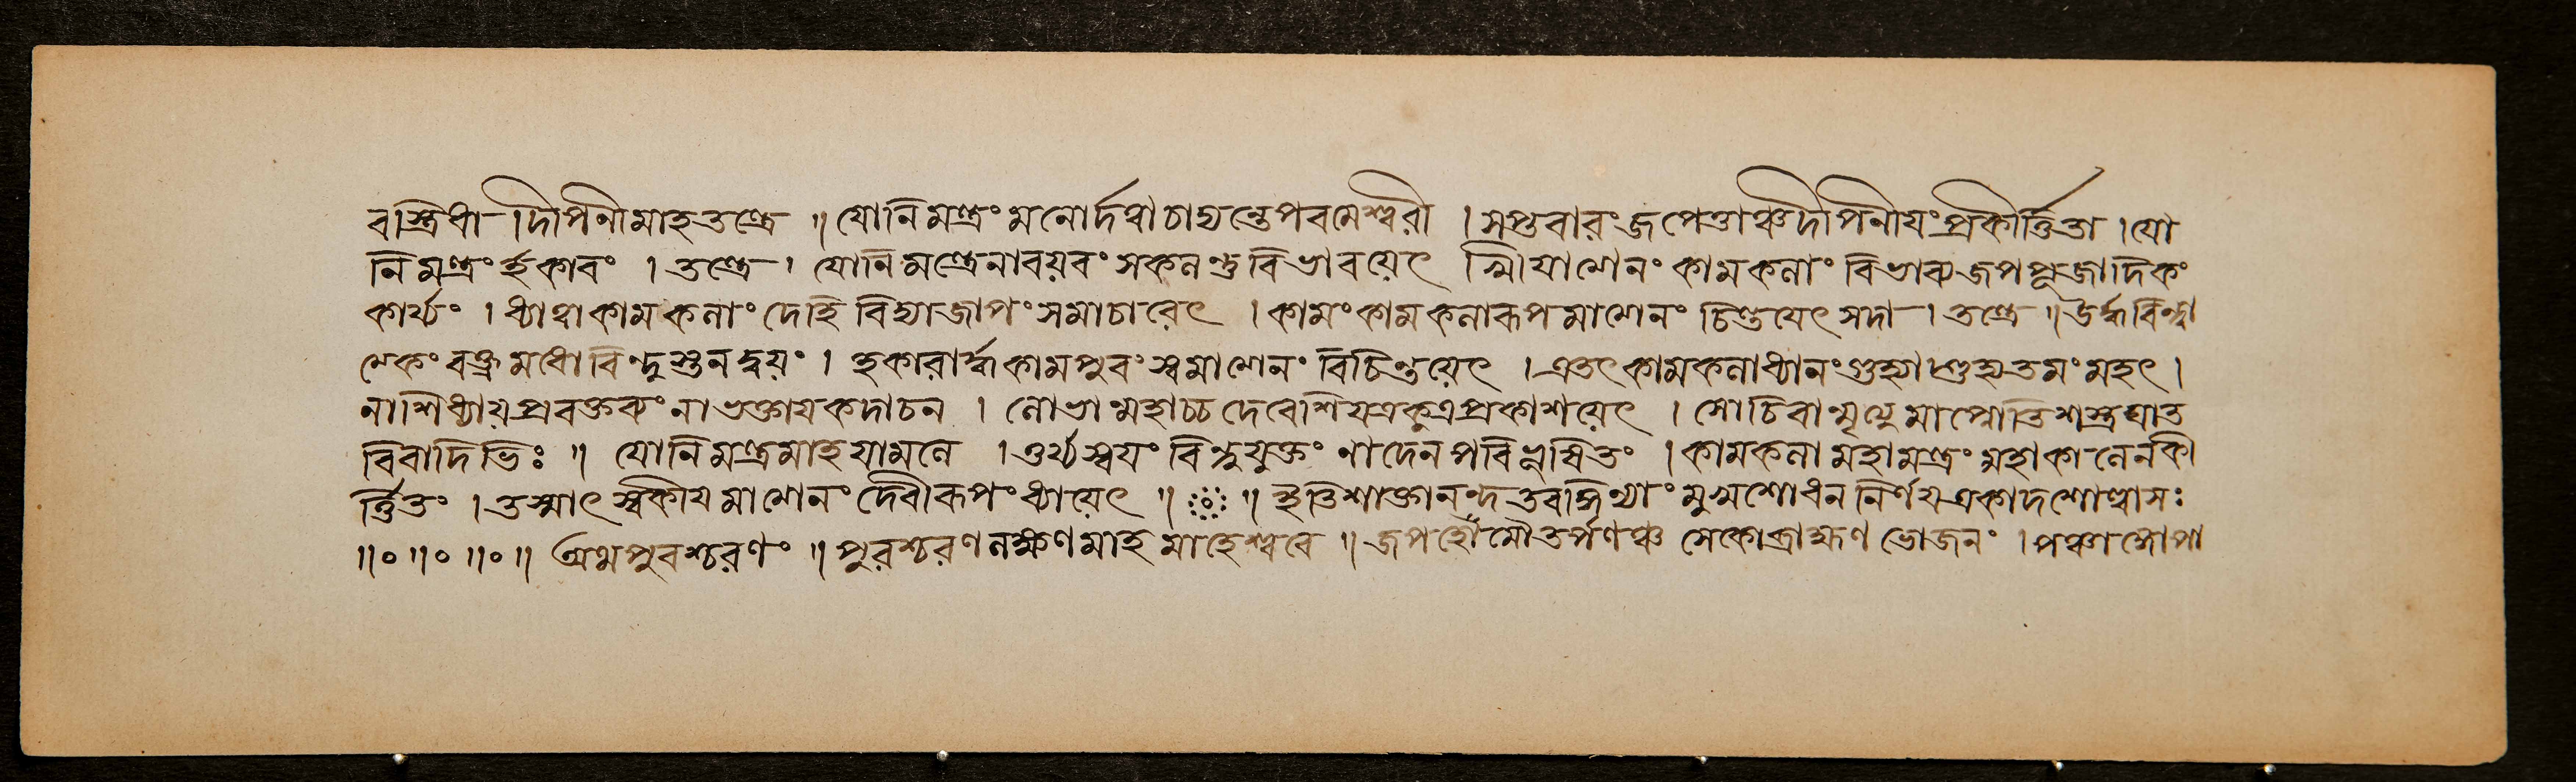 বাস্ত্রিধা দিপিনীমাহ তন্ত্রে ॥ যোনিমন্ত্রং মনোর্দত্বা চাদ্যন্তে পরমেশ্বরী । সপ্তবারং জপেত্তাঞ্চ দীপিনীয়ং প্রকীর্ত্তিতা । যো
নিমন্ত্রং ঈঁকারং । তন্ত্রে । যোনিমন্ত্রেনাবয়বং সকলন্তু বিভাবয়েৎ স্মিয়াত্মানং কামকলাং বিভাব্য জপপূজাদিকং
কার্য্যং । ধ্যাত্বা কামকলাং দেহি বিদ্যাজাপং সমাচারেৎ । কামং কামকলারূপমাত্মানং চিন্তয়েৎ সদা । তন্ত্রে ॥ ঊর্দ্ধবিন্দ্বা
ত্মকং বক্ত্রমধো বিন্দুস্তনদ্বয়ং । হকারার্দ্ধকামপুরং স্বমাত্মানং বিচিন্তয়েৎ । এতৎ কামকলাধ্যানং গুহ্যাদ্গুহ্যতমং মহৎ ।
নাশিধ্যায় প্রবক্তব্যং নাভক্তায় কদাচন । লোভান্মহাচ্চ দেবেশি যত্রকুত্র প্রকাশয়েৎ । সোচিরান্মৃত্যুমাপ্নোতি শস্ত্রঘাত
বিবাদিভিঃ ॥ যোনিমন্ত্রমাহ যামলে । তুর্য্যস্বরং বিন্দুযুক্তং নাদেন পরিভূষিতং । কামকলা মহামন্ত্রং মহাকালেন কী
র্ত্তিতং । তস্মাৎ স্বকীয়মাত্মানং দেবীরূপং ধ্যায়েৎ ॥ ❈ ॥ ইতি শাক্তানন্দতরঙ্গিণ্যাং মুখশোধন নির্ণয় একাদশোল্লাসঃ
॥০॥০॥০॥ অথ পুরশ্চরণং ॥ পুরশ্চরণলক্ষণমাহ মাহেশ্বরে ॥ জপহোমৌ তর্পণঞ্চ সেকো ব্রাহ্মণ ভোজনং । পঞ্চাঙ্গোপা